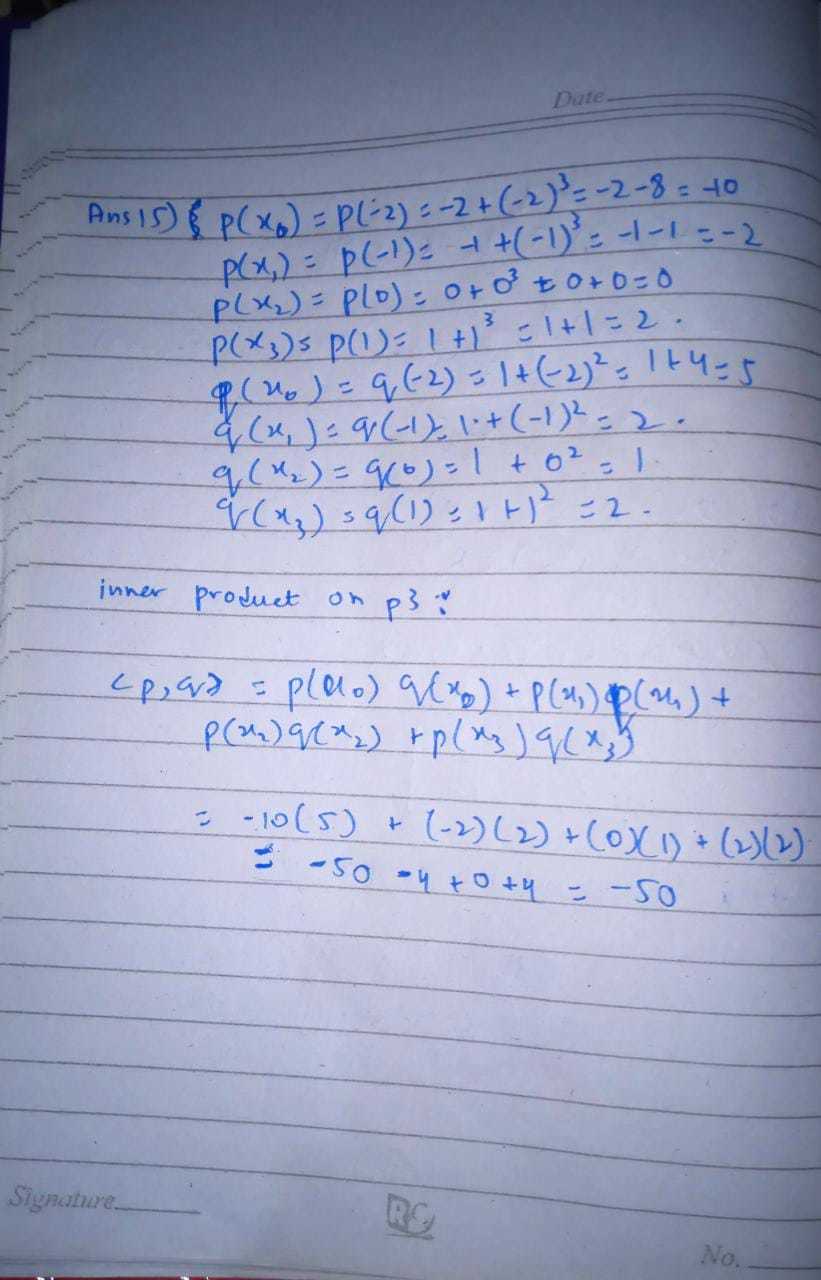 Date
Ans 15) p(x₀) = p(-2) = -2 + (-2)³ = -2 - 8 = -10
p(x₁) = p(-1) = -1 + (-1)³ = -1 - 1 = -2
p(x₂) = p(0) = 0 + 0³ = 0 + 0 = 0
p(x₃) = p(1) = 1 + 1³ = 1 + 1 = 2.
q(x₀) = q(-2) = 1 + (-2)² = 1 + 4 = 5
q(x₁) = q(-1) = 1 + (-1)² = 2.
q(x₂) = q(0) = 1 + 0² = 1
q(x₃) = q(1) = 1 + 1² = 2.
inner product on p3 :
<p, q> = p(x₀) q(x₀) + p(x₁) q(x₁) +
p(x₂) q(x₂) + p(x₃) q(x₃)
= -10(5) + (-2)(2) + (0)(1) + (2)(2)
= -50 - 4 + 0 + 4 = -50
Signature
RC
No.